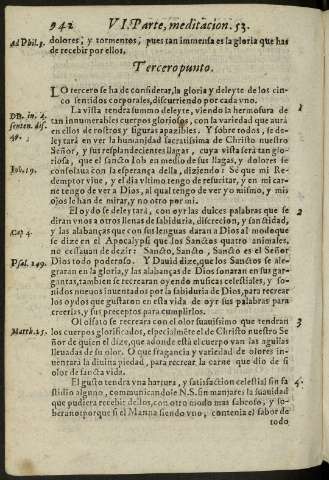 942 VI. Parte, meditacion. 53.
ad Phil. 3. dolores, y tormentos, pues tan immensa es la gloria que has
de recebir por ellos.
Tercero punto.
LO tercero se ha de considerar, la gloria y deleyte de los cin-
co sentidos corporales, discurriendo por cada vno.
La vista tendra sumo deleyte, viendo la hermosura de 1
tan innumerables cuerpos gloriosos, con la variedad que aurà
en ellos de rostros y figuras apazibles. Y sobre todos, se de-
leytarà en ver la humanidad sacratissima de Christo nuestro
Señor, y sus resplandecientes llagas, cuya vista serà tan glo-
riosa, que el sancto Iob en medio de sus llagas, y dolores se
Iob. 19. consolaua con la esperança della, diziendo: Sè que mi Re-
demptor viue, y el dia vltimo tengo de resucitar, y en mi car-
ne tengo de ver a Dios, al qual tengo de ver yo mismo, y mis
ojos le han de mirar, y no otro por mi.
El oydo se deleytarà, con oyr las dulces palabras que se 2
diran vnos a otros llenas de sabiduria, discrecion, y sanctidad,
y las alabanças que con sus lenguas daran a Dios al modo que
se dize en el Apocalypsi que los Sanctos quatro animales,
no cessauan de dezir: Sancto, Sancto, Sancto es el Señor
Dios todo poderoso. Y Dauid dize, que los Sanctos se ale-
graran en la gloria, y las alabanças de Dios sonaran en sus gar-
gantas, tambien se recrearan oyendo musicas celestiales, y so-
nidos nueuos inuentados por la sabiduria de Dios, para recrear
los oydos que gustaron en esta vida de oyr sus palabras para
creerlas, y sus preceptos para cumplirlos.
Ol olfato se recreara con el olor suauissimo que tendran 3
Matth. 25. los cuerpos glorificados, especialmēte el de Christo nuestro Se
ñor de quien el dize, que adonde està el cuerpo van las aguilas
lleuadas de su olor. O que fragancia y variedad de olores in-
uentarà la diuina piedad, para recrear la carne que dio de si
olor de sancta vida.
El gusto tendra vna hartura, y satisfaction celestial sin fa 4.
stidio alguno, communicandole N.S. sin manjares la suauidad
que pudiera recebir dellos, con otro modo mas sabroso, y so-
berano: porque si el Manna siendo vno, contenia el sabor de
todo